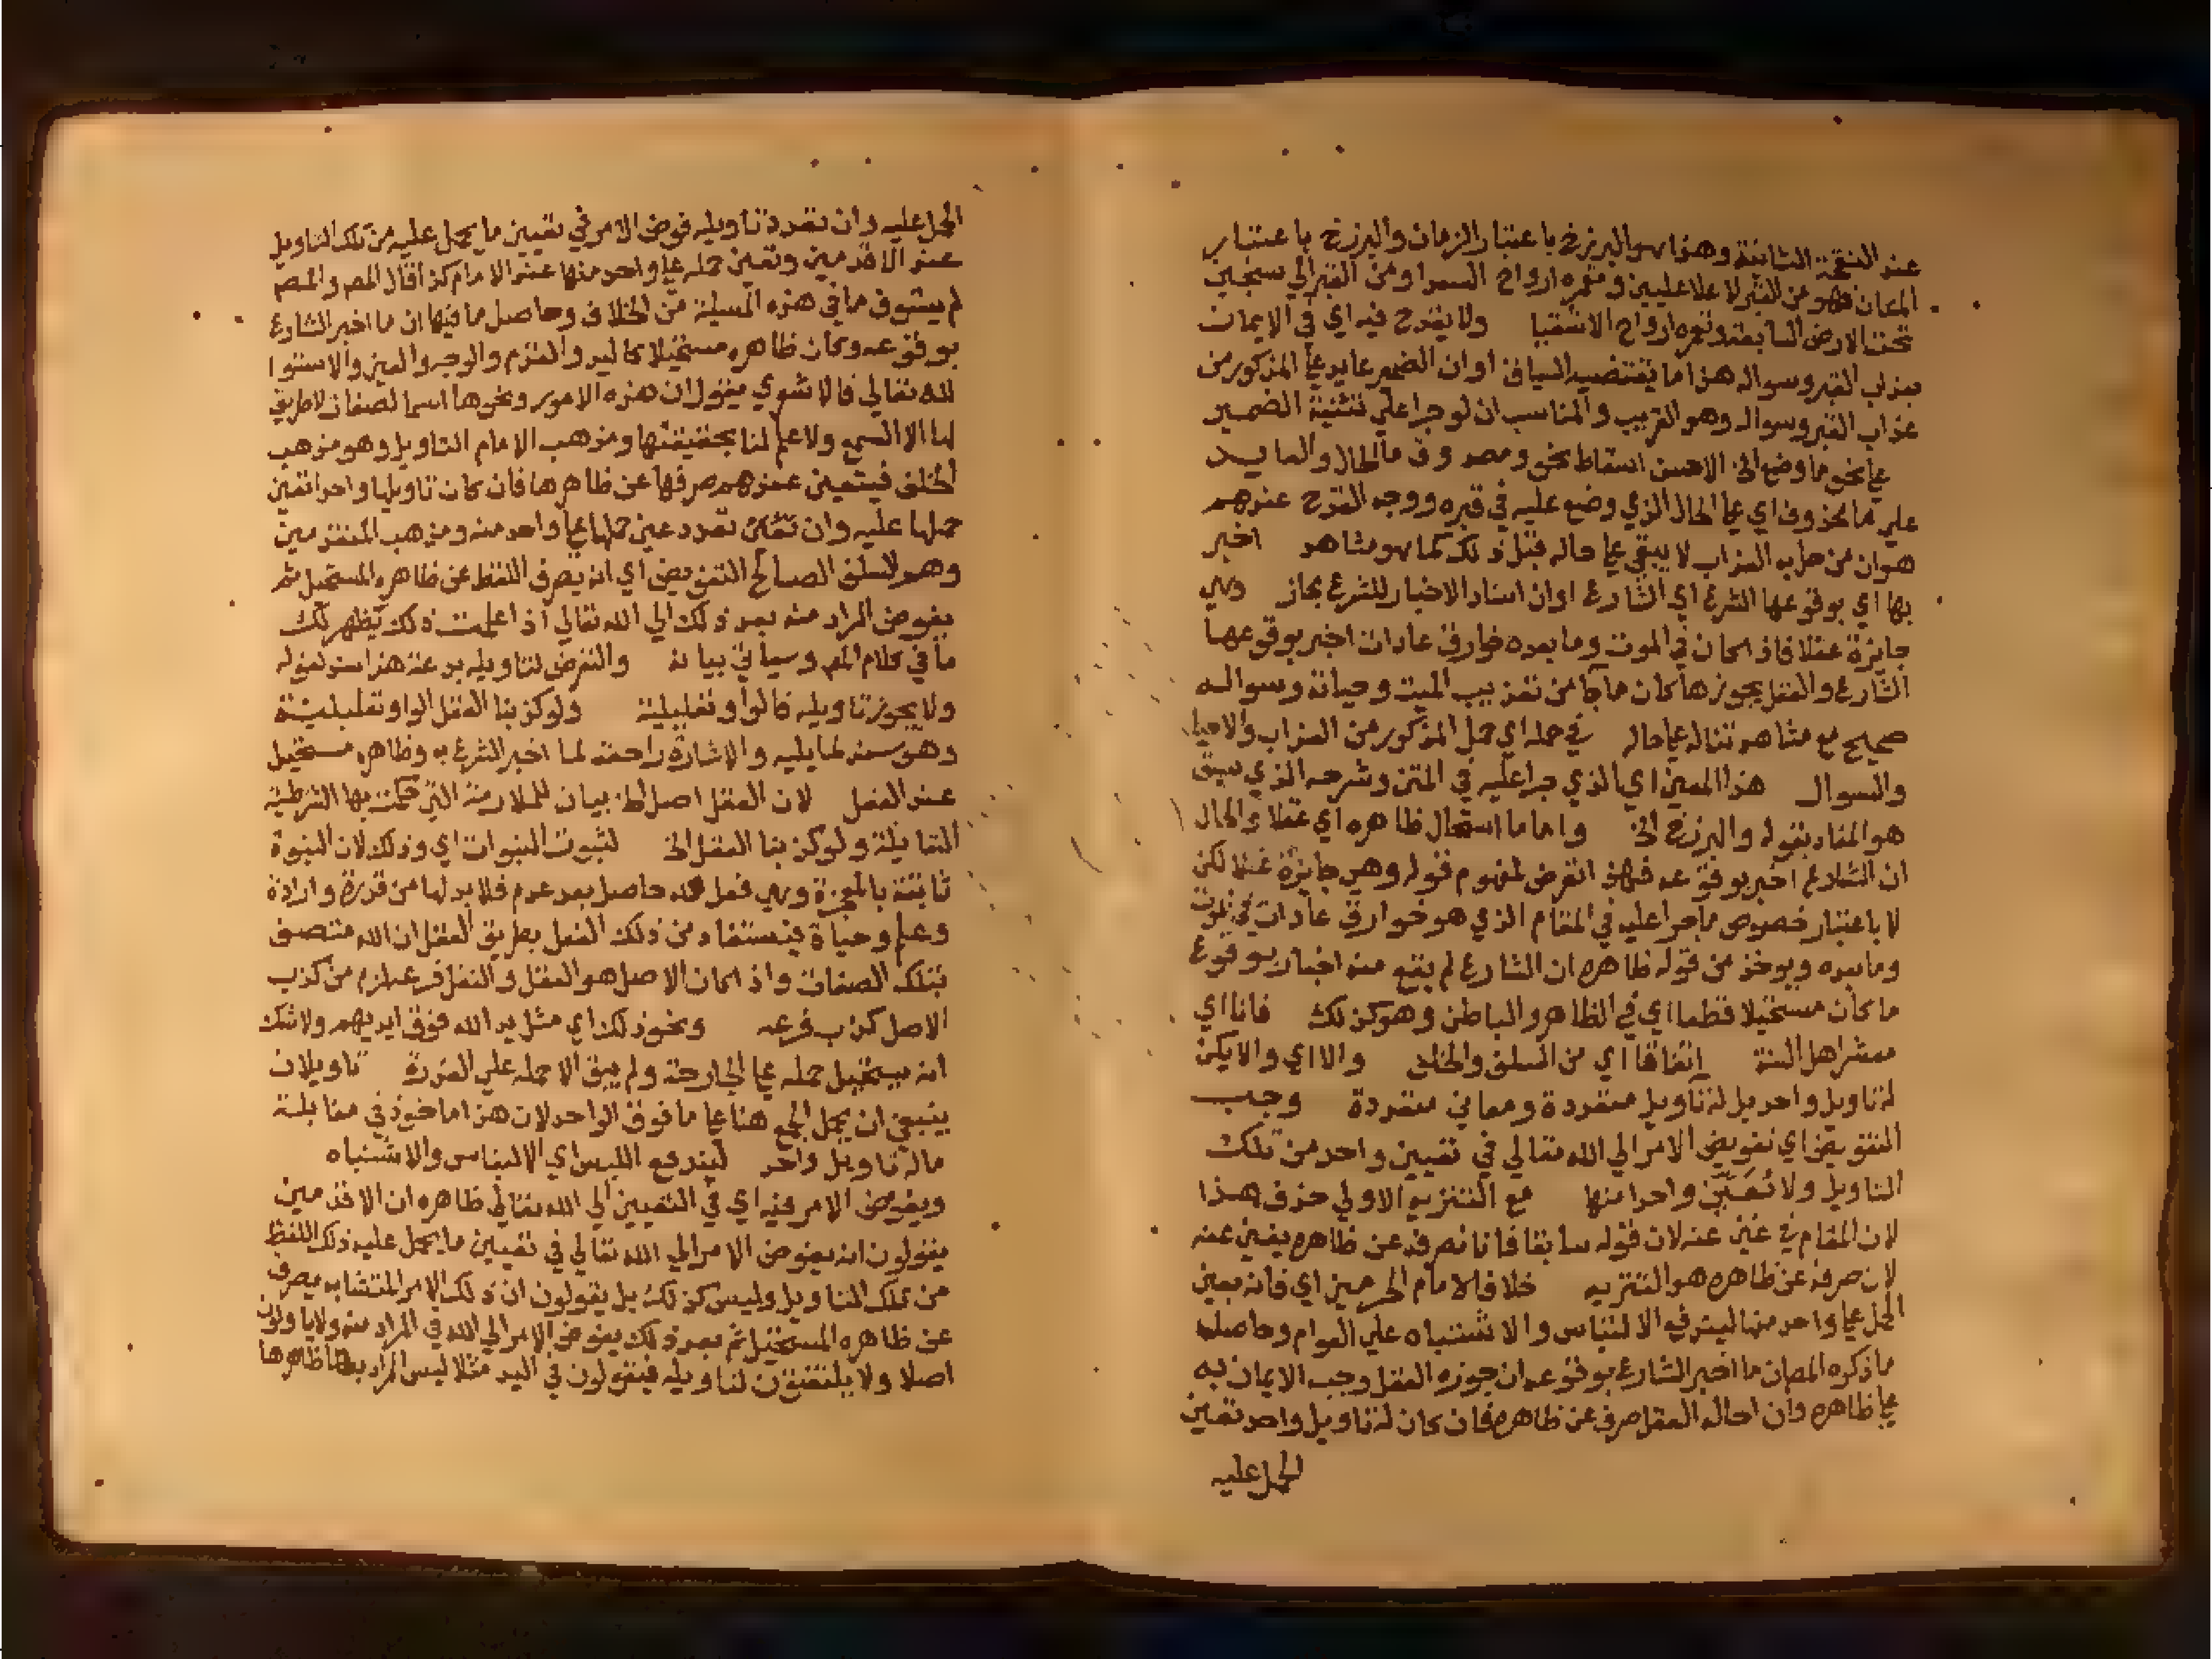 عند النفخة الثانية وهذا هو البرزخ باعتبار الزمان والبرزخ باعتبار
المكان فهو من القبر لاعلا عليين وتعمره ارواح السعدا ومن القبر الي سجين
تحت الارض السابعة وتعمره ارواح الاشقيا ولا يقدح فيه اي في الايمان
بعذاب القبر وسواله هذا ما يقتضيه السياق او ان الضمير عايد علي المذكور من
عذاب القبر وسواله وهو القريب والمناسب ان لو جرا علي تثنية الضمير
علي نحو ما وضع الخ الاحسن اسقاط نحو ومصدوق ما الحال والعايد
علي ما محذوف اي علي الحال الذي وضع عليه في قبره ووجه القدح عندهم
هو ان من حل به العذاب لا يبقي علي حاله قبل ذلك كما هو مشاهد اخبر
بها اي بوقوعها الشرع اي الشارع او ان اسناد الاخبار للشرع مجاز وهي
جايزة عقلا فاذا كان في الموت وما بعده خوارق عادات اخبر بوقوعها
الشارع والعقل يجوزها كان ما جا من تعذيب الميت وحياته وسواله
صحيح مع مشاهدتنا له علي حاله في حمله اي حمل المذكور من العذاب والاحيا
والسوال هذا المعني اي الذي جرا عليه في المتن وشرحه الذي سبق
هو المفاد بقوله والبرزخ الخ واما ما استحال ظاهره اي عقلا والحال
ان الشارع اخبر بوقوعه فهذا تعرض لمفهوم قوله وهي جايزة عقلا لكن
لا باعتبار خصوص ما جرا عليه في المقام الذي هو خوارق عادات في الموت
وما بعده ويوخذ من قوله ظاهره ان الشارع لم يقع منه اخبار بوقوع
ما كان مستحيلا قطعا اي في الظاهر والباطن وهو كذلك فانا اي
معشر اهل السنة اتفاقا اي من السلف والخلف والا اي والا يكن
له تاويل واحد بل له تاويل متعددة ومعاني متعددة وجب
التفويض اي تفويض الامر الي الله تعالي في تعيين واحد من تلك
التاويل ولا نعين واحدا منها مع التنزيه الاولي حذف هذا
لان المقام في غني عنه لان قوله سابقا فانا نصرفه عن ظاهره يغني عنه
لان صرفه عن ظاهره هو التنزيه خلافا لامام الحرمين اي فانه يعين
الحمل علي واحد منها ليندفع الالتباس والاشتباه علي العوام وحاصله
ما ذكره المص ان ما اخبر الشارع بوقوعه ان جوزه العقل وجب الايمان به
علي ظاهره وان احاله العقل صرف عن ظاهره فان كان له تاويل واحد تعين
الحمل عليه
الحمل عليه وان تعددة تاويله فوض الامر في تعيين ما يحمل عليه من تلك التاويل
عند الاقدمين وتعين حمله علي واحد منها عند الامام كذا قال المص والمص
لم يستوف ما في هذه المسيلة من الخلاف وحاصل ما فيها ان ما اخبر الشارع
بوقوعه وكان ظاهره مستحيلا كاليد والقدم والوجه والعين والاستوا
لله تعالي فالاشعري يقول ان هذه الامور ونحوها اسما لصفات لا طريق
لها الا السمع ولا علم لنا بحقيقتها ومذهب الامام التاويل وهو مذهب
الخلف فيتعين عندهم صرفها عن ظاهرها فان كان تاويلها واحدا تعين
حملها عليه وان تعدد عين حملها علي واحد منه ومذهب المتقدمين
وهو لسلف الصالح التفويض اي انه يصرف اللفظ عن ظاهره المستحيل ثم
يفوض المراد منه بعد ذلك الي الله تعالي اذا علمت ذلك يظهر لك
ما في كلام المص وسياتي بيانه والتعرض لتاويله بدعة هذا سند لقوله
ولا يجوز تاويله قالوا وتعليلية ولو كذبنا العقل الواو تعليلية
وهو سند لما يليه والاشارة راجعة لما اخبر الشرع به وظاهره مستحيل
عند العقل لان العقل اصل الخ بيان للملازمة التي حكمت بها الشرطية
القايلة ولو كذبنا العقل الخ لثبوت النبوات اي وذلك لان النبوة
ثابتة بالمعجزة وهي فعل لله حاصل بعد عدم فلا بد لها من قدرة وارادة
وعلم وحياة فيستفاد من ذلك الفعل بطريق العقل ان الله متصف
بتلك الصفات واذا كان الاصل هو العقل والنقل فرعه لزم من كذب
الاصل كذب فرعه ونحو ذلك اي مثل يد الله فوق ايديهم ولا شك
انه يستحيل حمله علي الجارحة ولم يبق الا حمله علي القدرة تاويلان
ينبغي ان يحمل الجمع هنا علي ما فوق الواحد لان هذا ماخوذ في مقابلة
ماله تاويل واحد ليندفع اللبس اي الالتباس والاشتباه
ويفوض الامر فيه اي في التعيين الي الله تعالي ظاهره ان الاقدمين
يقولون انه يفوض الامر الي الله تعالي في تعيين ما يحمل عليه ذلك اللفظ
من تلك التاويل وليس كذلك بل يقولون ان ذلك الامر المتشابه يصرف
عن ظاهره المستحيل ثم بعد ذلك يفوض الامر الي الله في المراد منه ولا ياولون
اصلا ولا يلتفتون لتاويله فيقولون في اليد مثلا ليس المراد بها ظاهرها